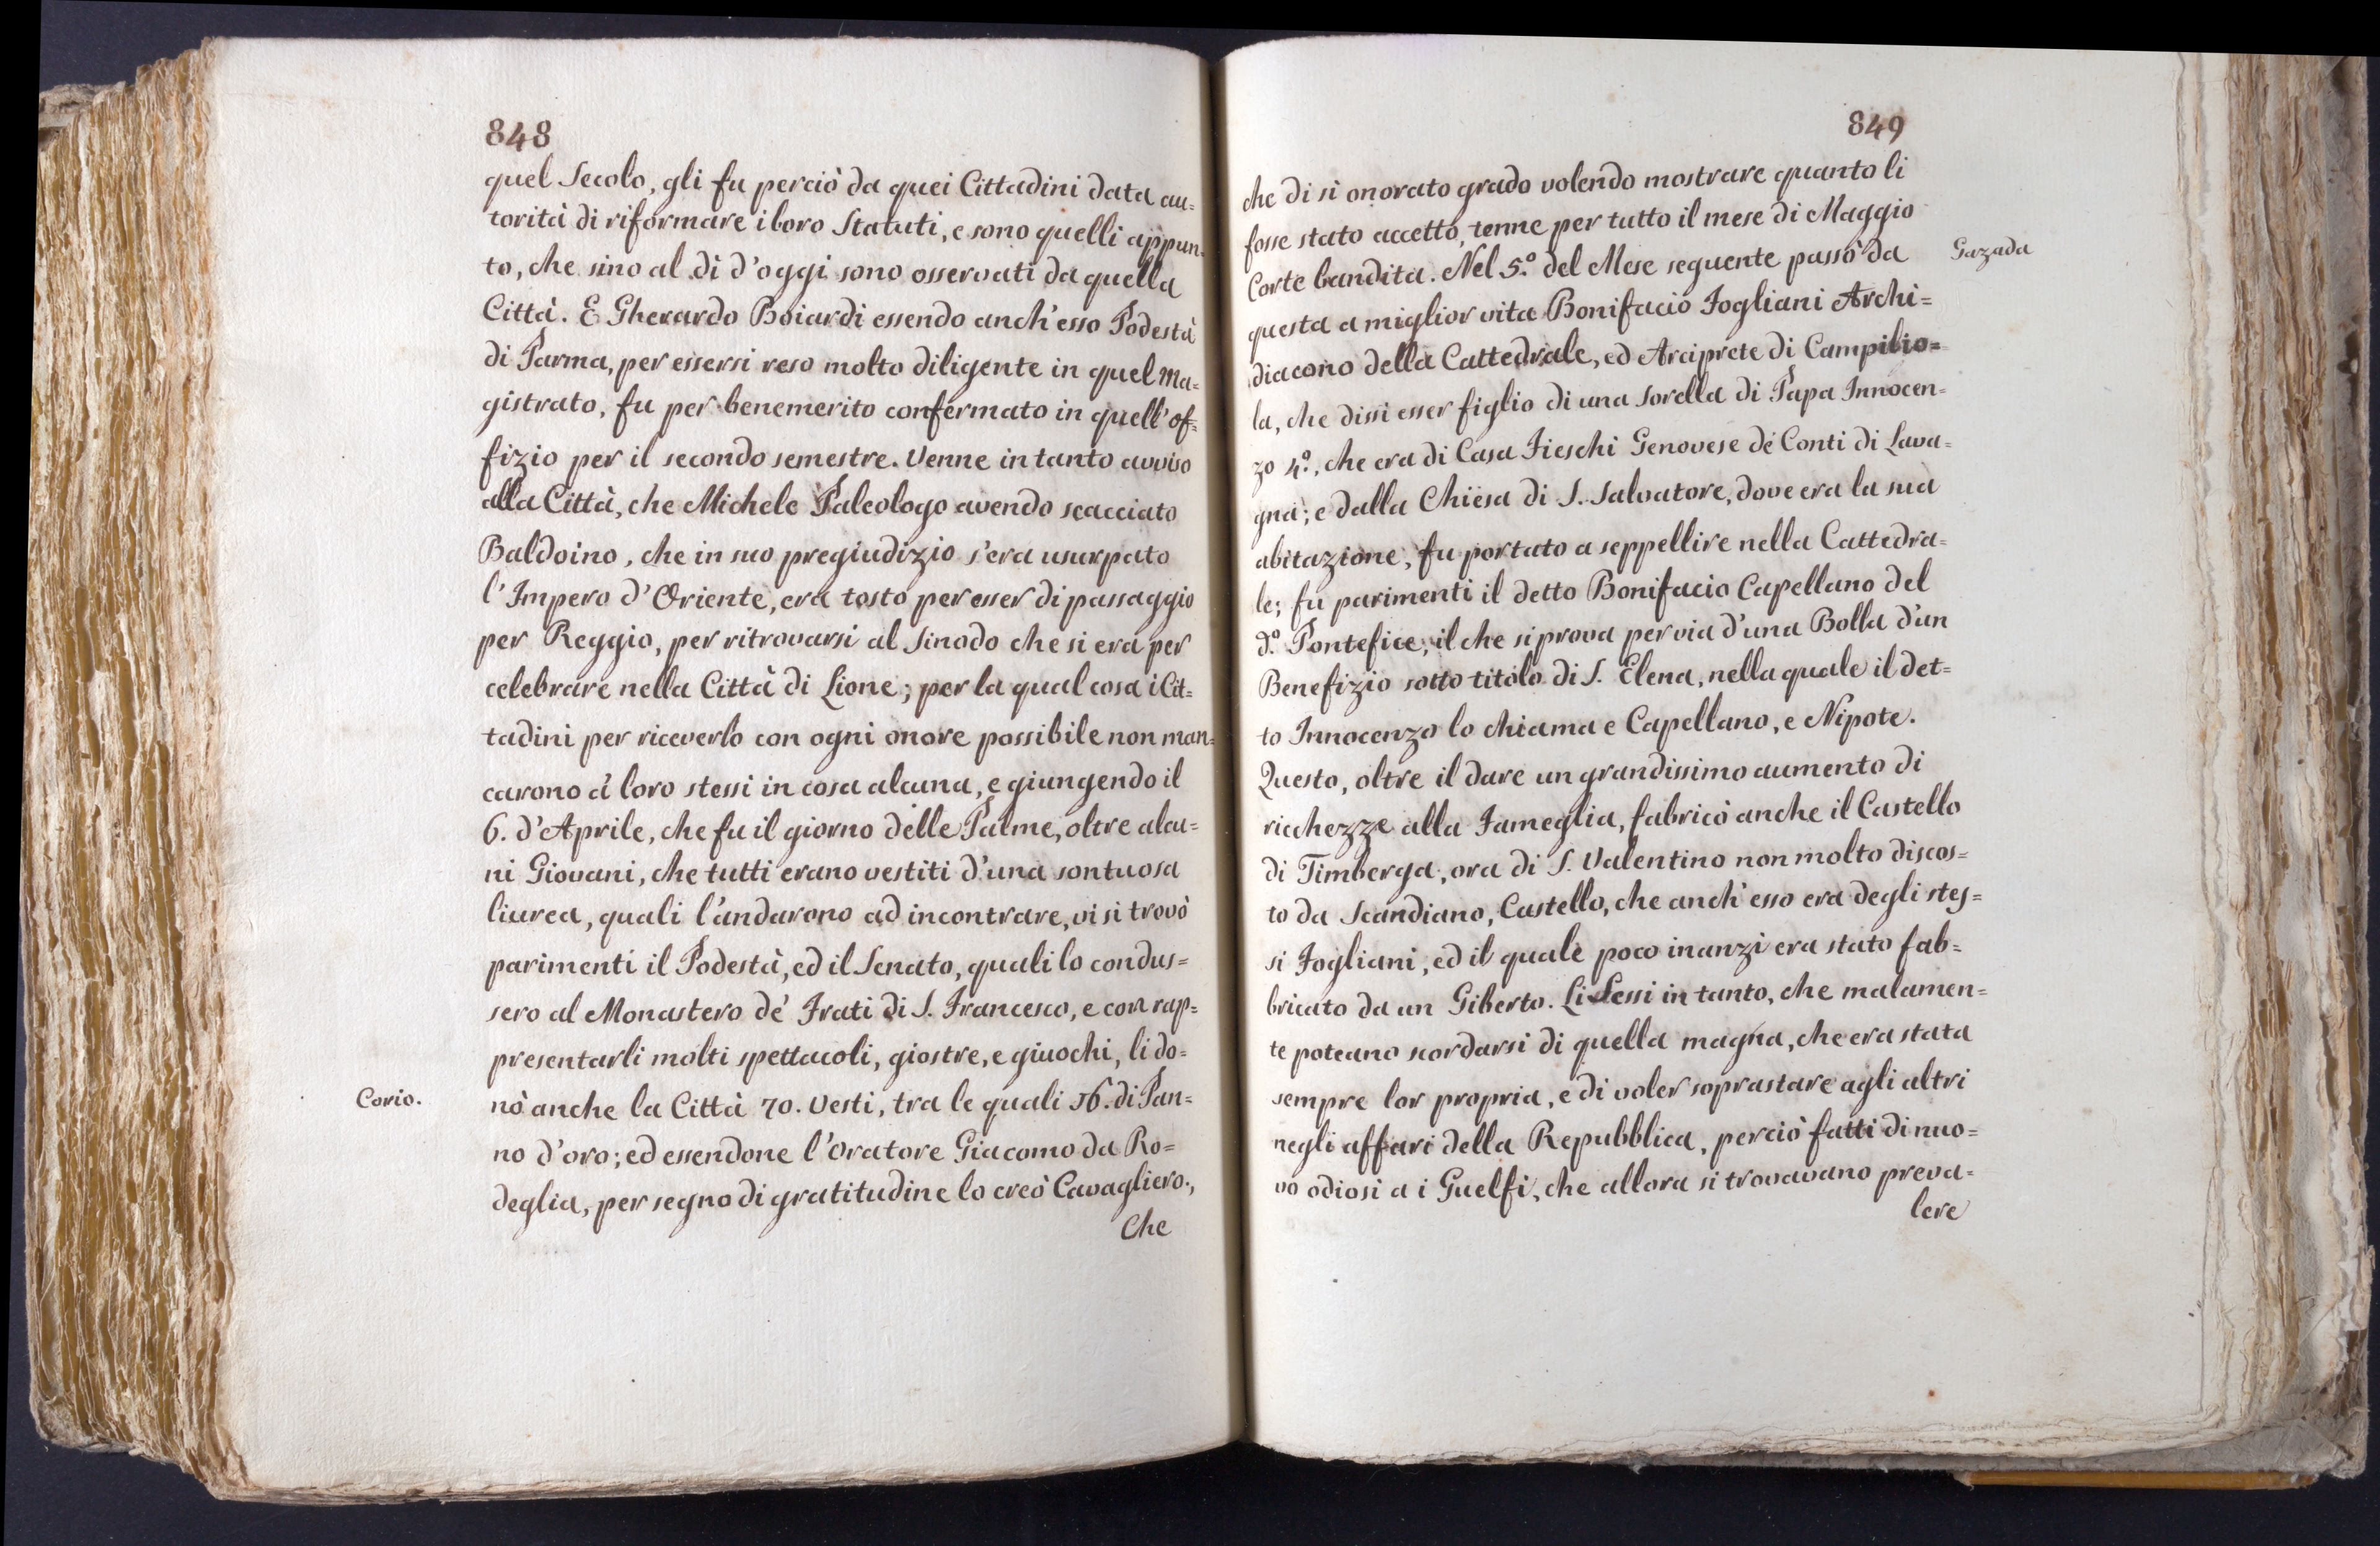 848
quel Secolo, gli fu perciò da quei Cittadini data au=
torità di riformare i loro Statuti, e sono quelli appun=
to, che sino al dì d'oggi sono osservati da quella
Città. E Gherardo Boiardi essendo anch'esso Podestà
di Parma, per essersi reso molto diligente in quel Ma=
gistrato, fu per benemerito confermato in quell'of=
fizio per il secondo semestre. Venne in tanto avviso
alla Città, che Michele Paleologo avendo scacciato
Baldoino, che in suo pregiudizio s'era usurpato
l'Impero d'Oriente, era tosto per esser di passaggio
per Reggio, per ritrovarsi al Sinodo che si era per
celebrare nella Città di Lione; per la qual cosa i Cit=
tadini per riceverlo con ogni onore possibile non man=
carono à loro stessi in cosa alcuna, e giungendo il
6. d'Aprile, che fu il giorno delle Palme, oltre alcu=
ni Giovani, che tutti erano vestiti d'una sontuosa
liurea, quali l'andarono ad incontrare, vi si trovò
parimenti il Podestà, ed il Senato, quali lo condus=
sero al Monastero de' Frati di S. Francesco, e con rap=
presentarli molti spettacoli, giostre, e giuochi, li do=
Corio.
nò anche la Città 70. Vesti, tra le quali 56. di Pan=
no d'oro; ed essendone l'Oratore Giacomo da Ro=
deglia, per segno di gratitudine lo creò Cavagliero.,
Che
849
che di sì onorato grado volendo mostrare quanto li
fosse stato accetto, tenne per tutto il mese di Maggio
Corte bandita. Nel 5.º del Mese seguente passò da
Gazada
questa a miglior vita Bonifacio Fogliani Archi=
diacono della Cattedrale, ed Arciprete di Campilio=
la, che dissi esser figlio di una Sorella di Papa Innocen=
zo 4.º, che era di Casa Fieschi Genovese de' Conti di Lava=
gna; e dalla Chiesa di S. Salvatore, dove era la sua
abitazione, fu portato a seppellire nella Cattedra=
le; fu parimenti il detto Bonifacio Capellano del
d.º Pontefice, il che si prova per via d'una Bolla d'un
Benefizio sotto titolo di S. Elena, nella quale il det=
to Innocenzo lo chiama e Capellano, e Nipote.
Questo, oltre il dare un grandissimo aumento di
ricchezze alla Fameglia, fabricò anche il Castello
di Timberga, ora di S. Valentino non molto discos=
to da Scandiano, Castello, che anch'esso era degli stes=
si Fogliani, ed il quale poco inanzi era stato fab=
bricato da un Giberto. Li Sessi in tanto, che malamen=
te poteano scordarsi di quella magna, che era stata
sempre lor propria, e di voler soprastare agli altri
negli affari della Repubblica, perciò fatti di nuo=
vo odiosi a i Guelfi, che allora si trovavano preva=
lere